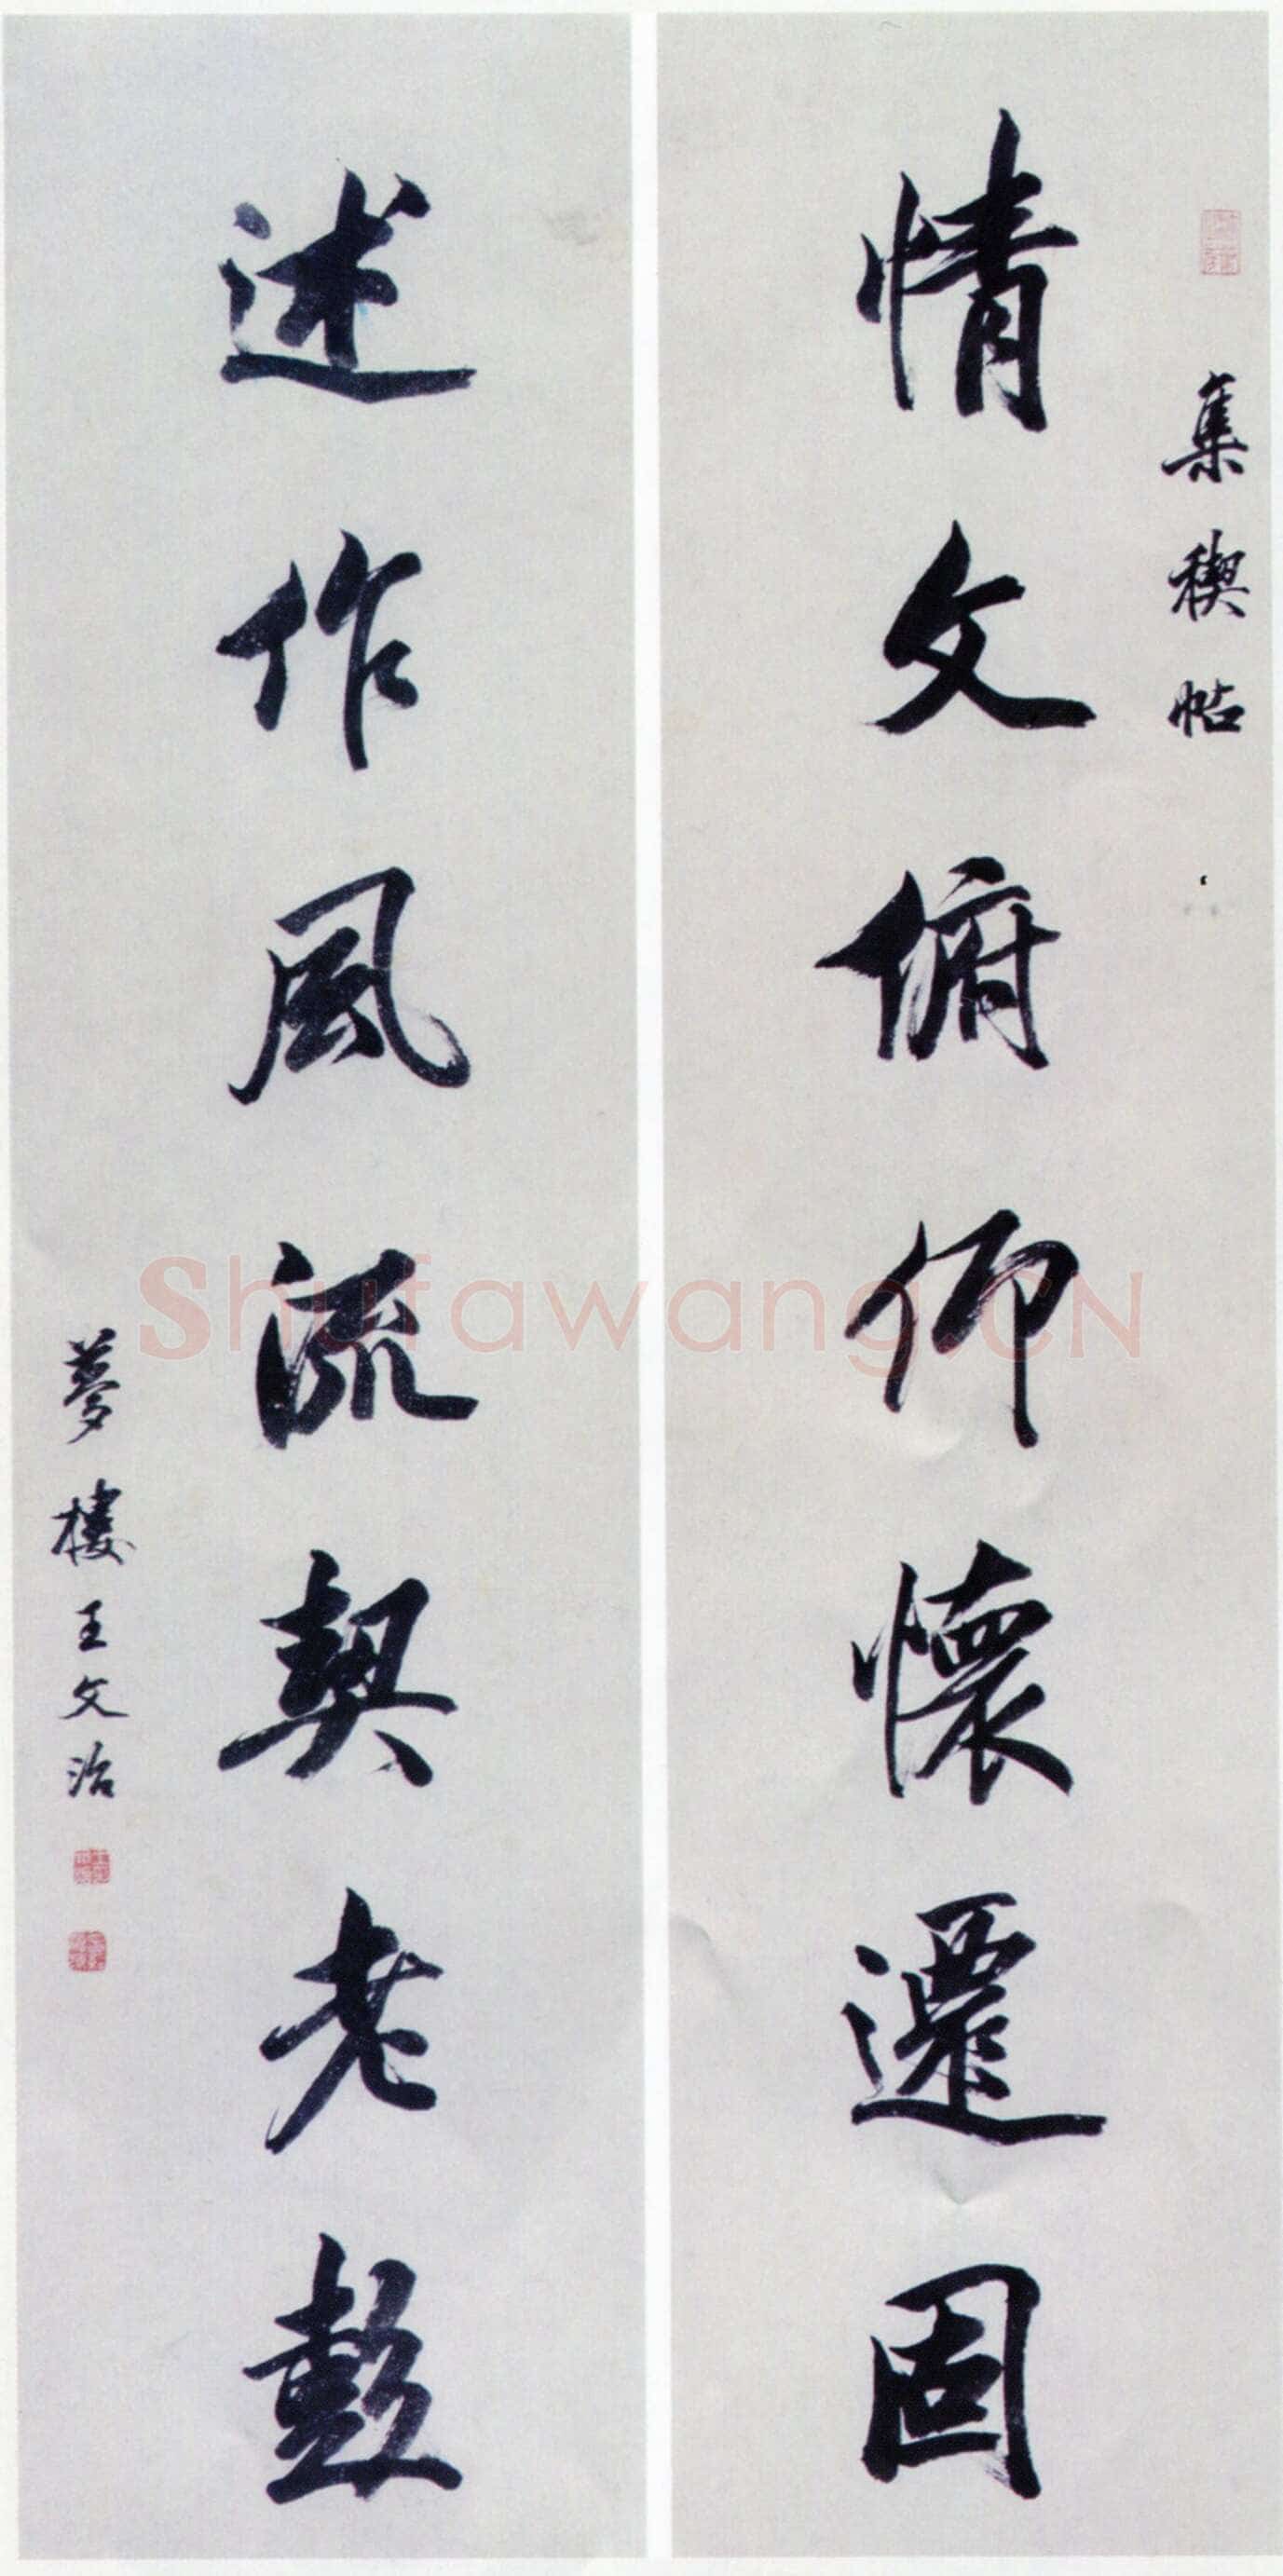 集禊帖
情文俯仰懷遷固
述作風流契老彭
夢樓王文治
Shufawang.CN